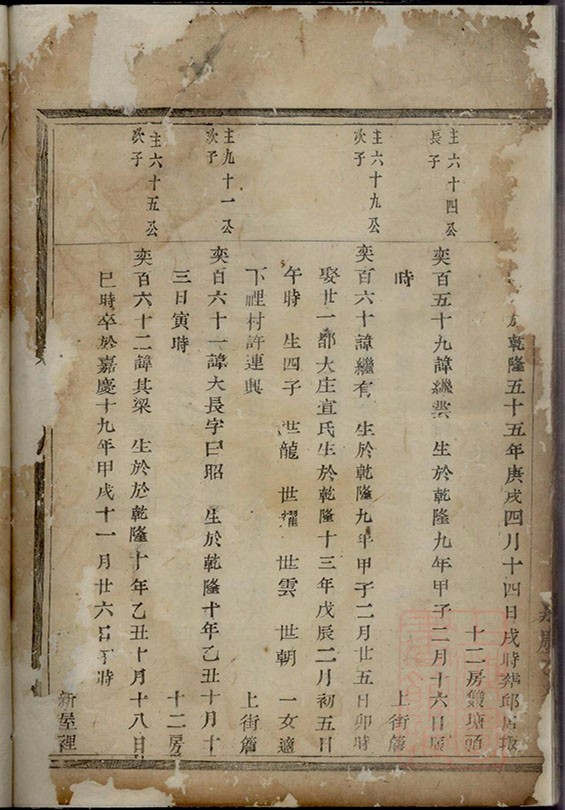 乾隆五十五年庚戌四月十四日戌時葬邱
十二房雙塘頭
主六十四公
長子
奕百五十九諱繼 生於乾隆九年甲子二月十六日辰
時 上街簷
主六十九公
次子
奕百六十諱繼有 生於乾隆九年甲子二月廿五日卯時
娶廿一都大庄宣氏生於乾隆十三年戊辰二月初五日
午時 生四子 世龍 世耀 世雲 世朝 一女適
下裡村許連興 上街簷
主九十一公
次子
奕百六十一諱大長字曰昭 生於乾隆十年乙丑十月十
三日寅時 十二房
主六十五公
次子
奕百六十二諱其梁 生於於乾隆十年乙丑十月十八日
巳時卒於嘉慶十九年甲戌十一月廿六日 時
新屋裡